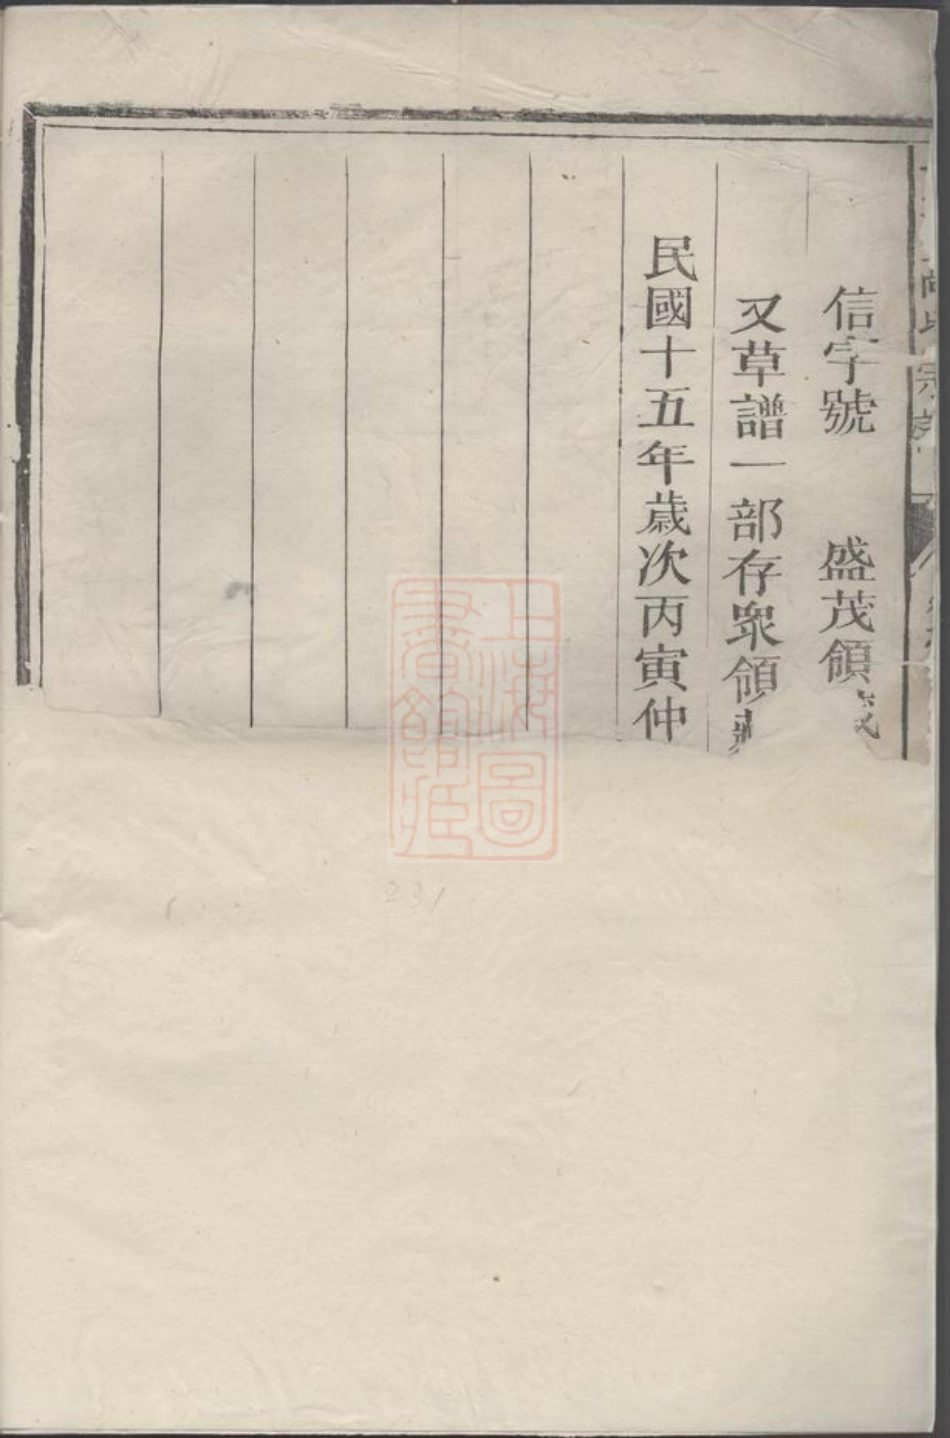 信字號 盛茂領
又草譜一部存眾領
民國十五年歲次丙寅仲
上海圖書館藏
231